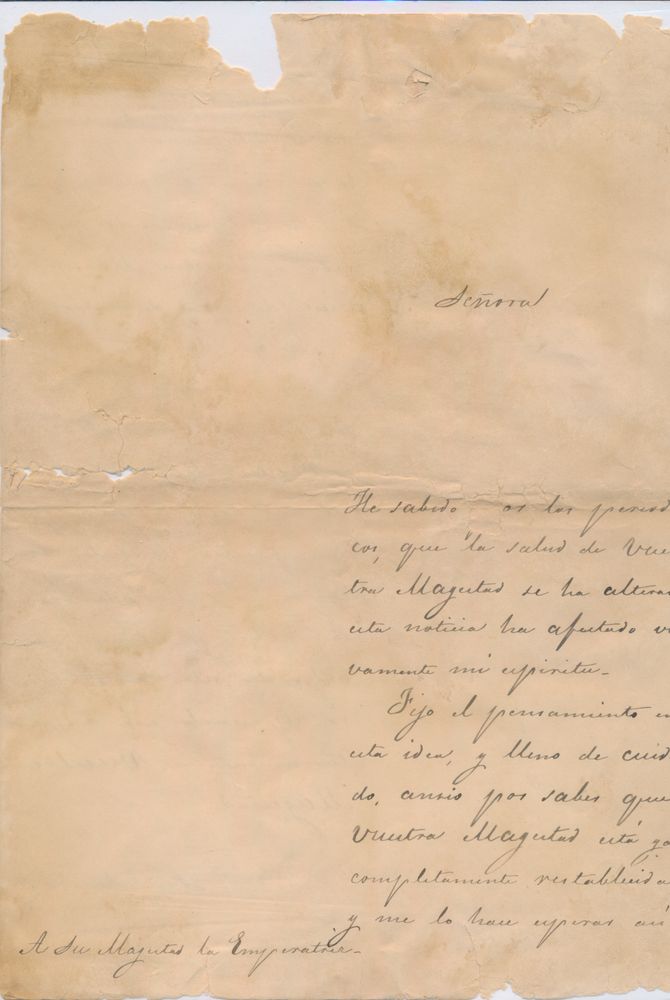 Señora
He sabido or los periodi
cos, que la salud de Vues
tra Magestad se ha altera
esta noticia ha afectado vi
vamente mi espiritu_
Fijo el pensamiento en
esta idea, y lleno de cuid
do, ansio por saber que
Vuestra Magestad está ya
completamente restablecida
y me lo hace esperar así
A Su Magestad la Emperatriz_